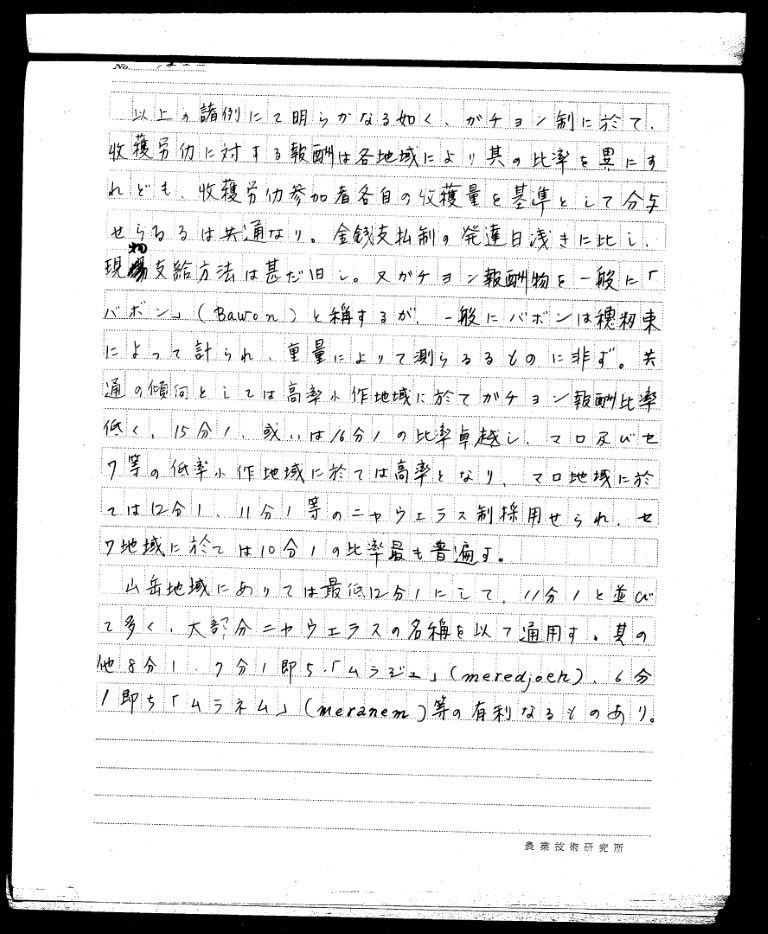 No.
以上の諸例にて明らかなる如く、ガチョン制に於て、
收獲労仂に対する報酬は各地域により其の比率を異にす
れども、收獲労仂参加者各自の收獲量を基準として分与
せらるるは共通なり。金銭支払制の発達日浅きに比し、
現物支給方法は甚だ旧し。又ガチョン報酬物を一般に「
バボン」(Bawon)と稱するが、一般にバボンは穂籾束
によって計られ、重量によりて測らるるものに非ず。共
通の傾向としては高率小作地域に於てガチョン報酬比率
低く、15分1、或いは16分1の比率卓越し、マロ及びセ
ワ等の低率小作地域に於ては高率となり、マロ地域に於
ては12分1、11分1等のニャウェラス制採用せられ、セ
ワ地域に於ては10分1の比率最も普遍す。
山岳地域にありては最低12分1にして、11分1と並び
て多く、大部分ニャウェラスの名稱を以て通用す。其の
他8分1、7分1即ち「ムラジュ」(meredjoeh)、6分
1即ち「ムラネム」(meranem)等の有利なるものあり。
農業技術研究所